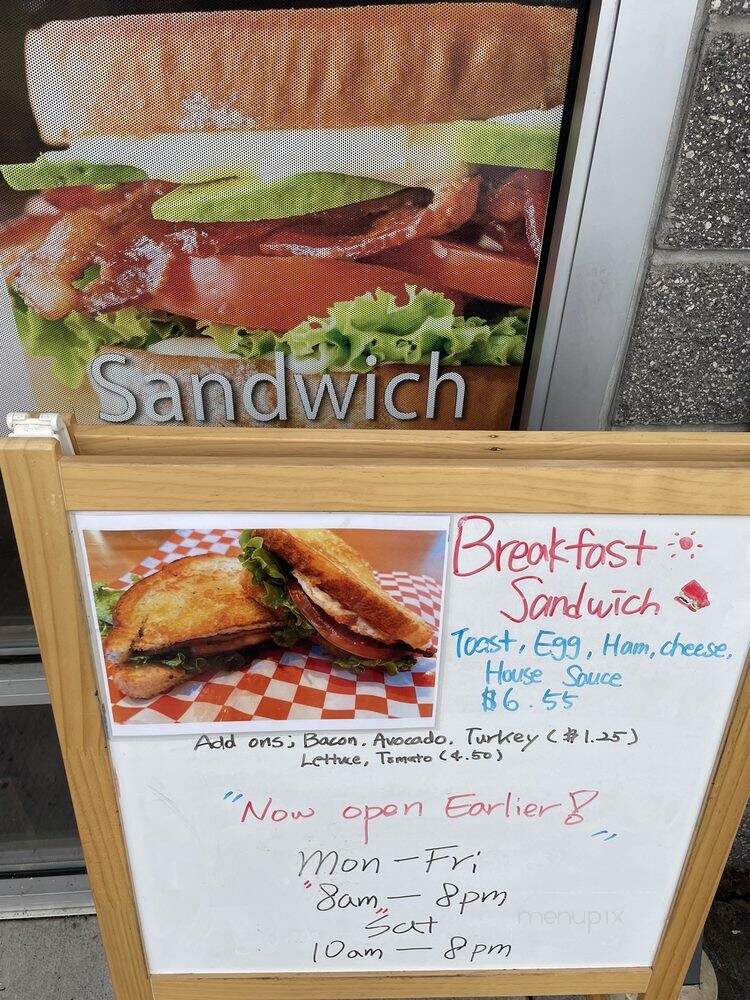 Sandwich
Breakfast
Sandwich
Toast, Egg, Ham, cheese,
House Sauce
$6.55
Add ons; Bacon, Avocado, Turkey ($1.25)
Lettuce, Tomato (4.50)
"Now open Earlier! "
Mon - Fri
"8am - 8pm
"Sat
10am - 8pm
menupix